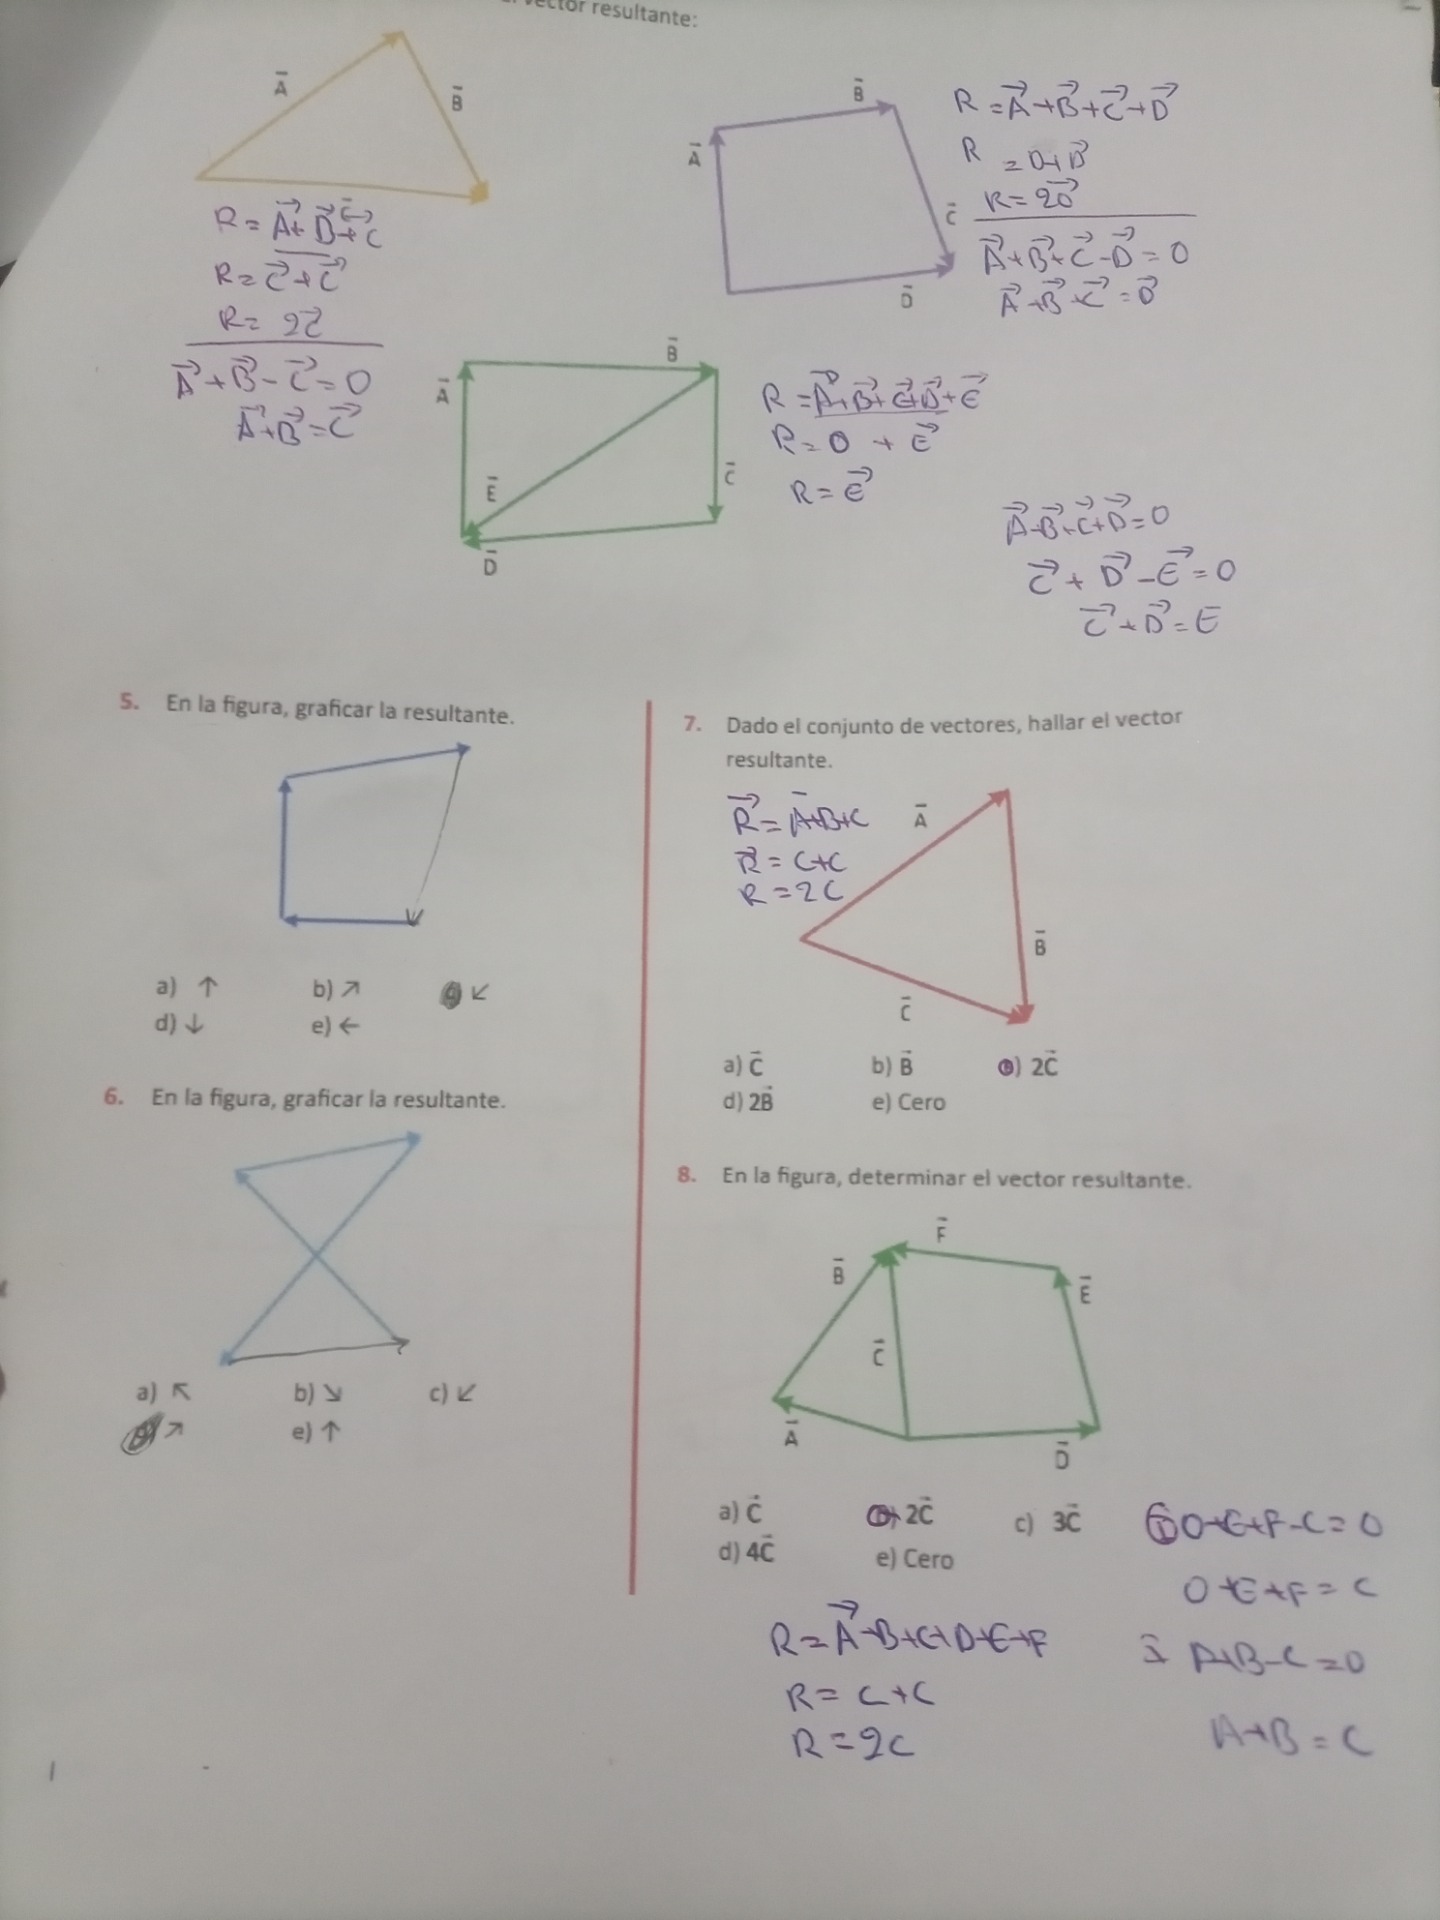 vector resultante:
A
B
C
R = A + B + C
R = C + C
R = 2C
A + B - C = 0
A + B = C
B
A
C
D
R = A + B + C + D
R = D + D
R = 2D
A + B + C - D = 0
A + B + C = D
B
A
E
C
D
R = A + B + C + D + E
R = 0 + E
R = E
A + B + C + D = 0
C + D - E = 0
C + D = E
5. En la figura, graficar la resultante.
a) ↑ b) ↗ ↙
d) ↓ e) ←
6. En la figura, graficar la resultante.
a) ↖ b) ↘ c) ↙
↗ e) ↑
7. Dado el conjunto de vectores, hallar el vector
resultante.
R = A+B+C
R = C+C
R = 2C
A
B
C
a) C b) B c) 2C
d) 2B e) Cero
8. En la figura, determinar el vector resultante.
F
B
E
C
A
D
a) C b) 2C c) 3C
d) 4C e) Cero
R = A+B+C+D+E+F
R = C+C
R = 2C
D+E+F-C = 0
D+E+F = C
A+B-C = 0
A+B = C